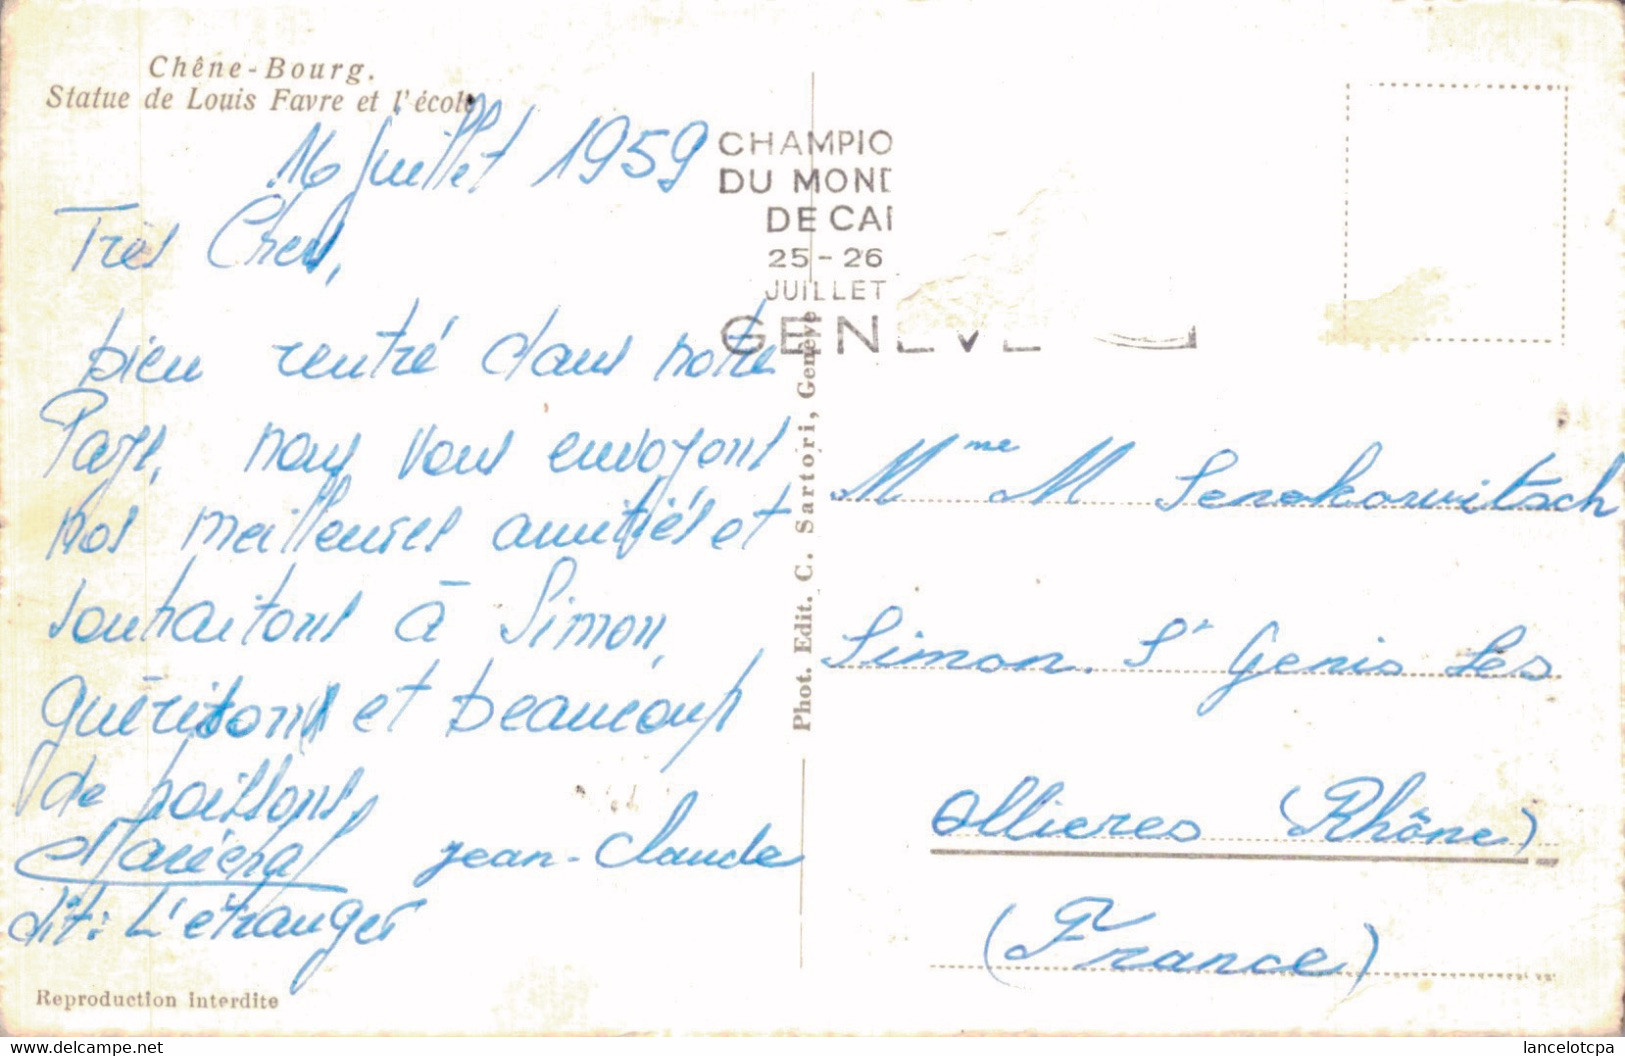 Chêne-Bourg.
Statue de Louis Favre et l'école
16 juillet 1959
Très Chers,
bien rentré dans notre
Pays, nous vous envoyons
nos meilleures amitiés et
souhaitons à Simon,
guérisons et beaucoup
de poissons,
jean-Claude
dit: L'étranger
Reproduction Interdite
Phot. Edit. C. Sartori, Genève
CHAMPIO
DU MOND
DE CA
25-26
JUILLET
GENÈVE
Mme M Serekowitsch
Simon. St Genis Les
Ollieres (Rhône)
(France)
delcampe.net
lancelotcpa